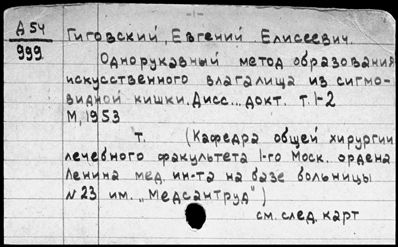 Д 54
999
Гиговский, Евгений Елисеевич.
Однорукавный метод образования
искусственного влагалища из сигмо-
видной кишки. Дисс... докт. т. 1-2
М, 1953
т. (Кафедра общей хирургии
лечебного факультета 1-го Моск. ордена
Ленина мед. ин-та на базе больницы
№ 23 им. „Медсантруд")
см. след. карт